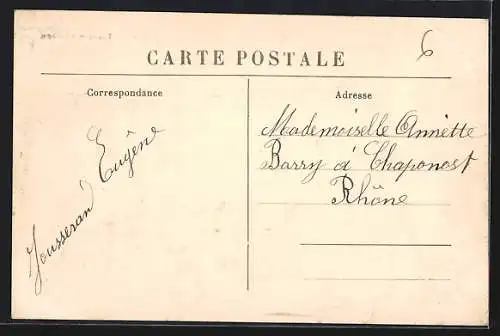 CARTE POSTALE
6
Correspondance
Adresse
Jousserand Eugène
Mademoiselle Annette
Barry à Chaponost
Rhône